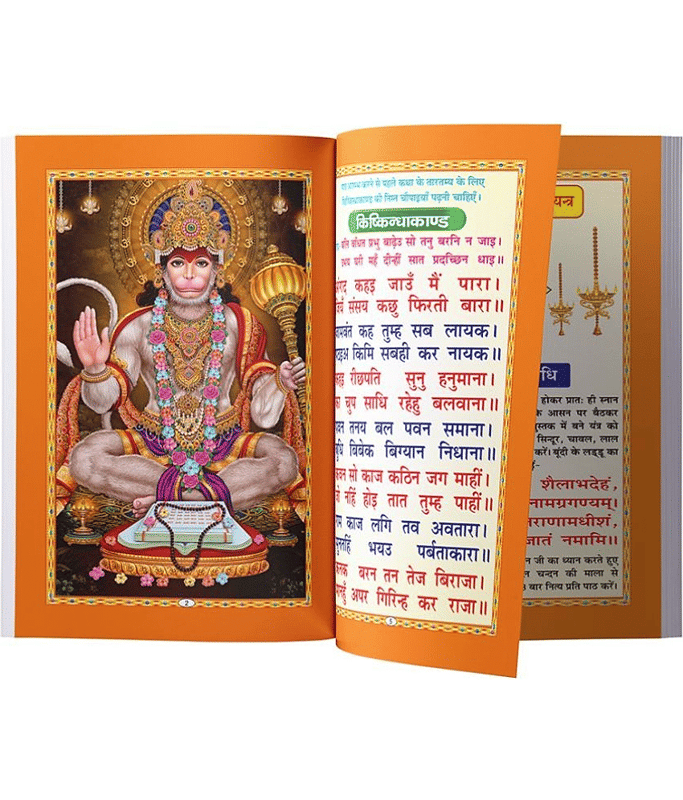 2
से पहले कथा के तारतम्य के लिए
की निम्न चौपाइयाँ पढ़नी चाहिएँ।
किष्किन्धाकाण्ड
प्रभु बाढ़ेउ सो तनु बरनि न जाइ।
घरी महँ दीन्हीं सात प्रदच्छिन धाइ॥
कहइ जाउँ मैं पारा।
संसय कछु फिरती बारा॥
कह तुम्ह सब लायक।
किमि सबही कर नायक॥
रीछपति सुनु हनुमाना।
का चुप साधि रहेहु बलवाना॥
तनय बल पवन समाना।
बिबेक बिग्यान निधाना॥
सो काज कठिन जग माहीं।
नहिं होइ तात तुम्ह पाहीं॥
काज लगि तव अवतारा।
भयउ पर्बताकारा॥
बरन तन तेज बिराजा।
अपर गिरिन्ह कर राजा॥
5
यन्त्र
धि
होकर प्रातः ही स्नान
के आसन पर बैठकर
स्तक में बने यंत्र को
सिन्दूर, चावल, लाल
करें। बूंदी के लड्डू का
शैलाभदेहं
नामग्रगण्यम्।
राणामधीशं
जातं नमामि॥
न जी का ध्यान करते हुए
चन्दन की माला से
वार नित्य प्रति पाठ करें।